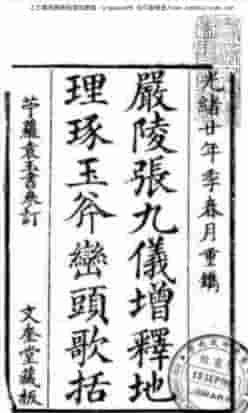 光緒廿年季春月重鐫
嚴陵張九儀增釋地
理琢玉斧巒頭歌括
苧蘿袁玉書參訂
文奎堂藏板